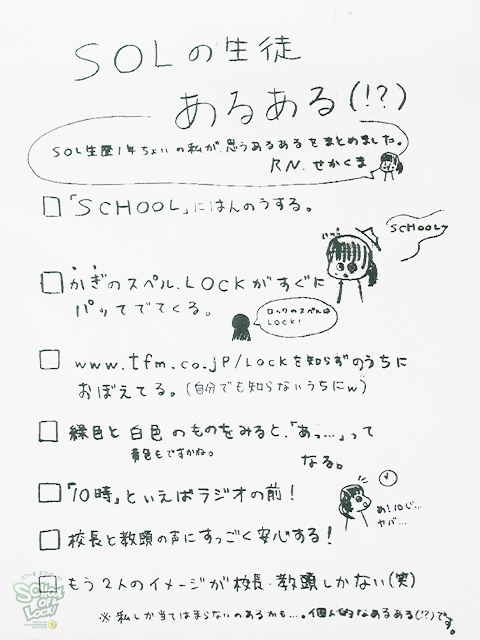 SOLの生徒
あるある(!?)
SOL生歴1年ちょいの私が、思うあるあるをまとめました。
R.N. せかくま
「SCHOOL」にはんのうする。
SCHOOL
かぎのスペル、LOCKがすぐに
パッてでてくる。
ロックのスペルは
LOCK!
www.tfm.co.jp/Lockを知らずのうちに
おぼえてる。(自分でも知らないうちにw)
緑色と白色のものをみると、「あっ…」って
黄色もですかね。
なる。
「10時」といえばラジオの前!
あ!10じ…
ヤバ…
校長と教頭の声にすっごく安心する!
もう2人のイメージが校長・教頭しかない(笑)
※私しか当てはまらないのあるかも…。個人的なあるある(!?)です。
SCHOOL
OF
LOCK!